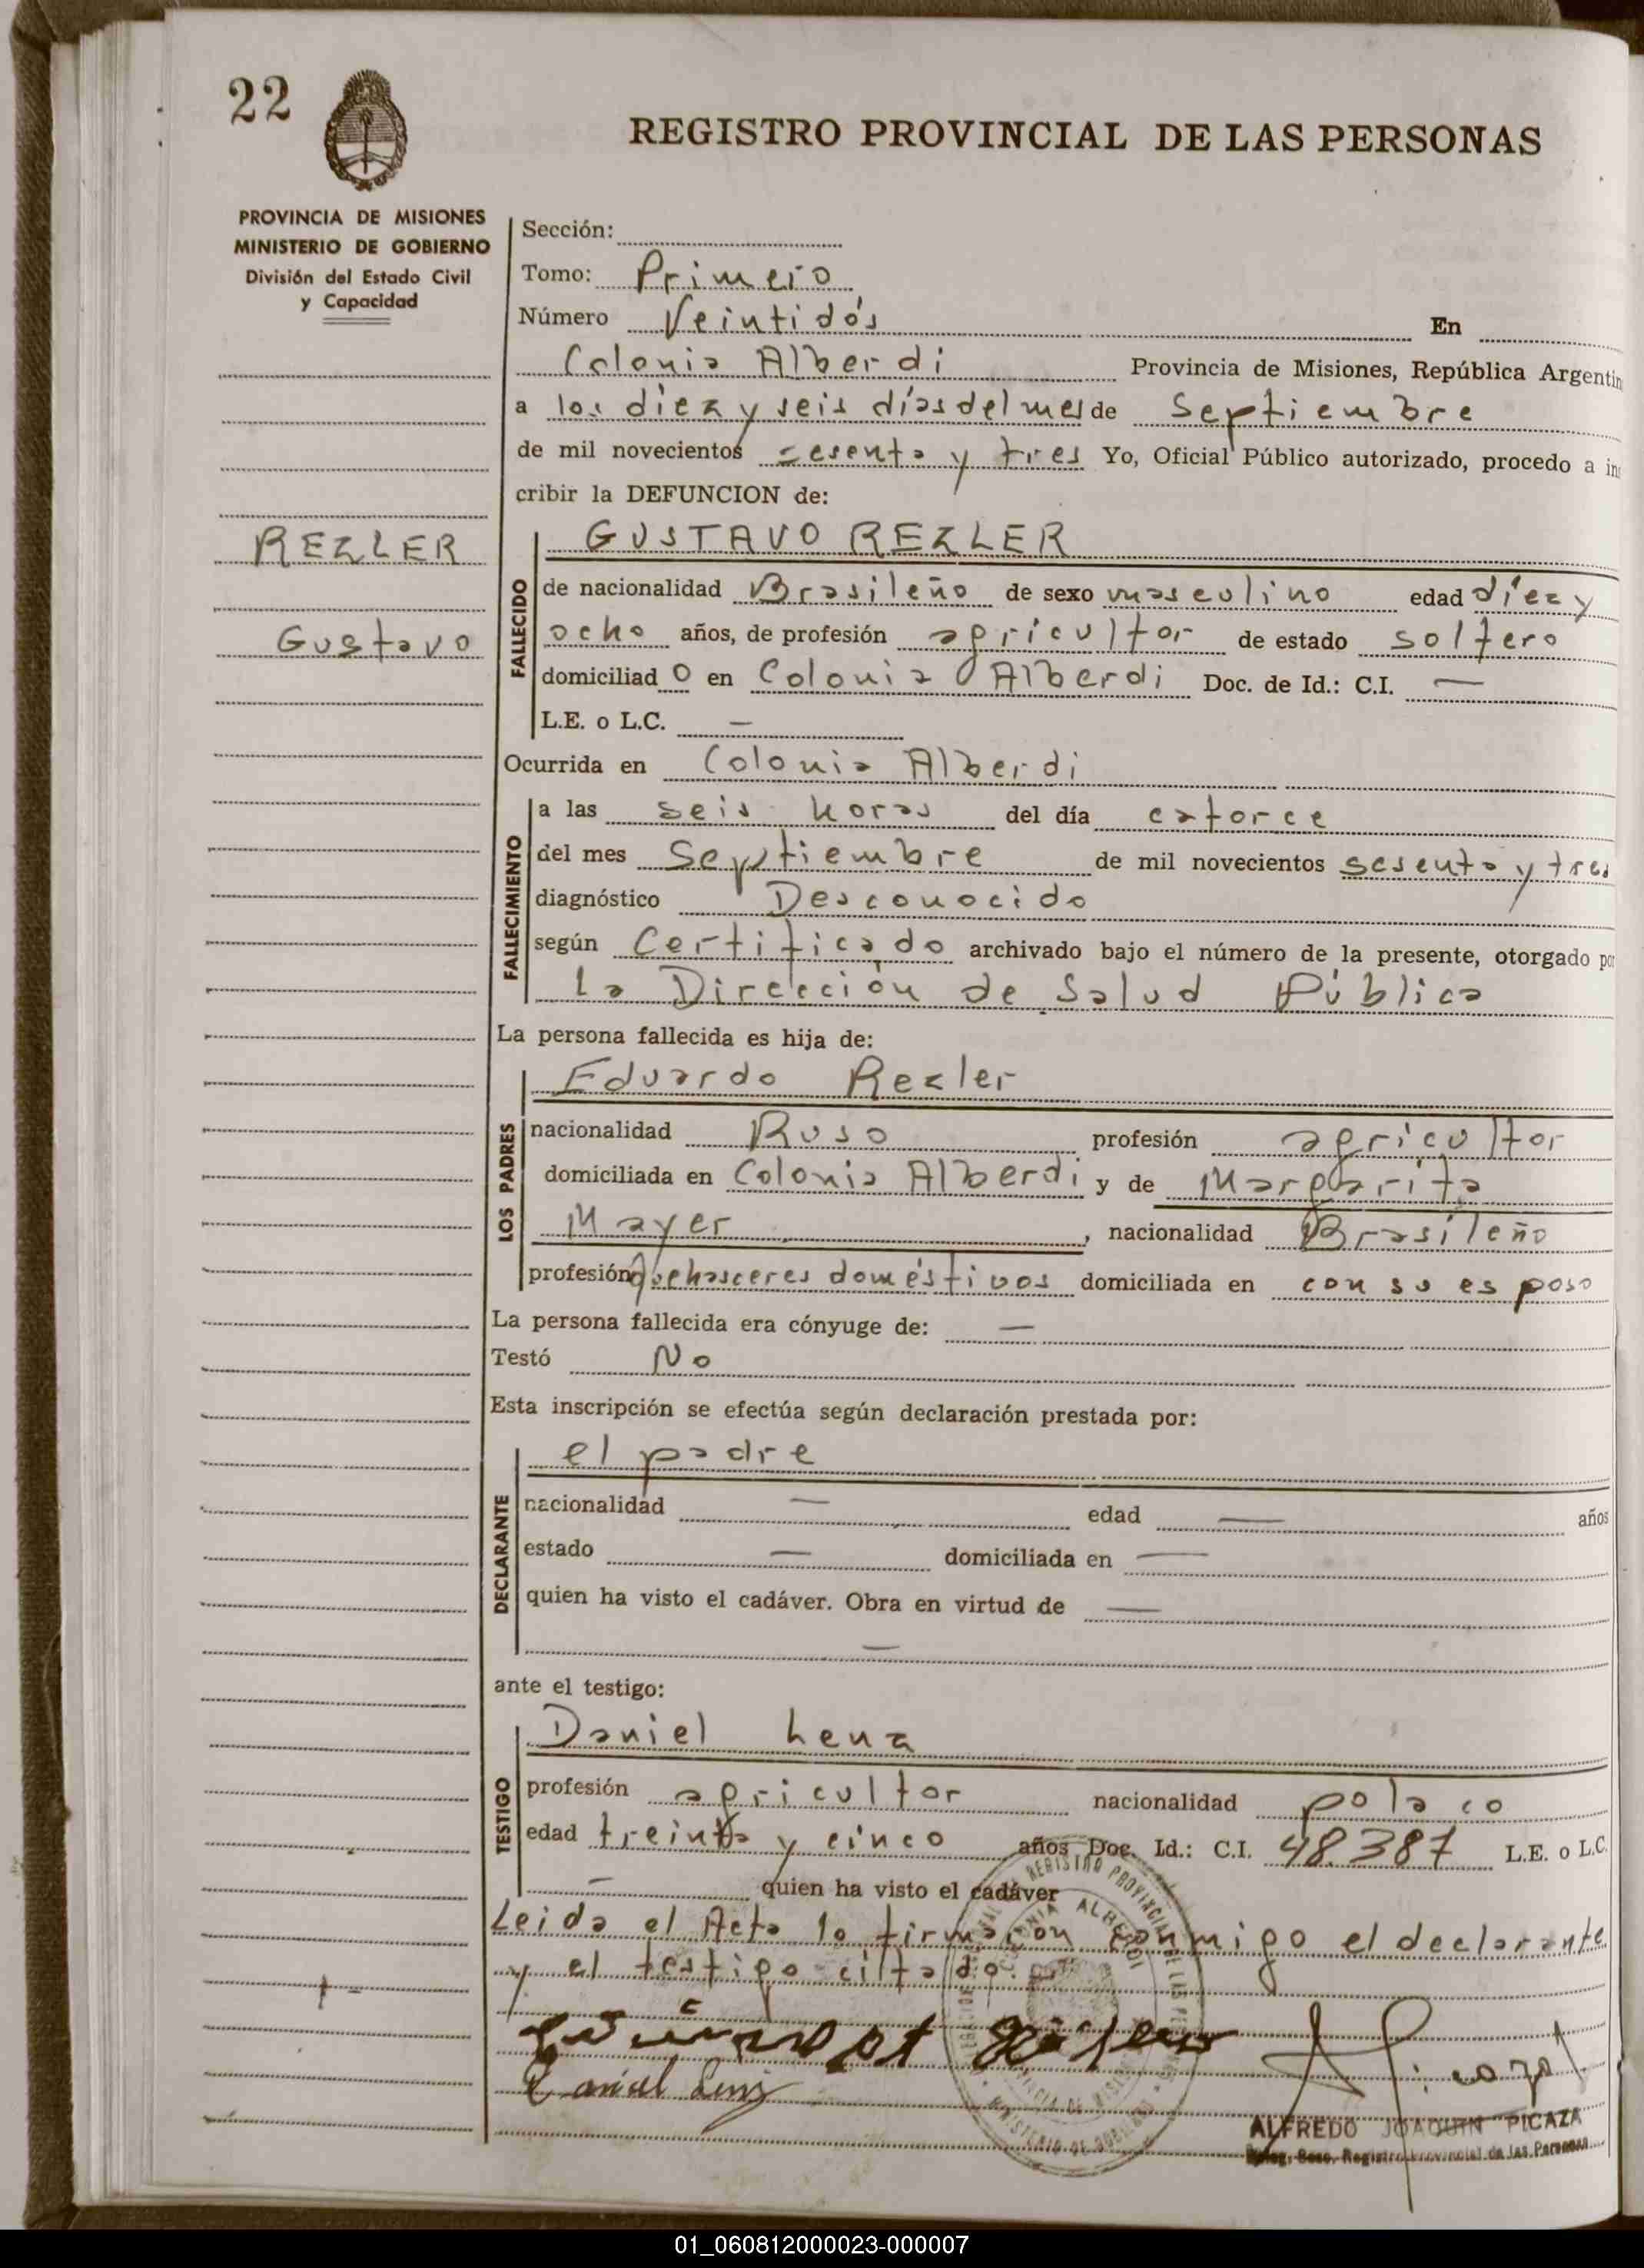 22
REGISTRO PROVINCIAL DE LAS PERSONAS
PROVINCIA DE MISIONES
MINISTERIO DE GOBIERNO
División del Estado Civil
y Capacidad
REZLER
Gustavo
Sección:
Tomo: Primero
Número Veintidós En
Colonia Alberdi Provincia de Misiones, República Argentin
a los diez y seis días del mes de Septiembre
de mil novecientos sesenta y tres Yo, Oficial Público autorizado, procedo a ins
cribir la DEFUNCION de:
FALLECIDO
GUSTAVO REZLER
de nacionalidad Brasileño de sexo masculino edad diez y
ocho años, de profesión agricultor de estado soltero
domiciliad o en Colonia Alberdi Doc. de Id.: C.I. —
L.E. o L.C. —
Ocurrida en Colonia Alberdi
FALLECIMIENTO
a las seis horas del día catorce
del mes Septiembre de mil novecientos sesenta y tres
diagnóstico Desconocido
según Certificado archivado bajo el número de la presente, otorgado por
la Dirección de Salud Pública
La persona fallecida es hija de:
LOS PADRES
Eduardo Rezler
nacionalidad Ruso profesión agricultor
domiciliada en Colonia Alberdi y de Margarita
Mayer, nacionalidad Brasileño
profesión quehasceres domésticos domiciliada en con su esposo
La persona fallecida era cónyuge de: —
Testó No
Esta inscripción se efectúa según declaración prestada por:
DECLARANTE
el padre
nacionalidad — edad — años
estado — domiciliada en —
quien ha visto el cadáver. Obra en virtud de —
—
ante el testigo:
TESTIGO
Daniel Lenz
profesión agricultor nacionalidad polaco
edad treinta y cinco años Doc. Id.: C.I. 48.387 L.E. o L.C.
— quien ha visto el cadáver
Leida el Acta la firmaron conmigo el declarante
y el testigo citado.
Daniel Lenz
ALFREDO JOAQUIN PICAZA
Registro Provincial de las Personas
01_060812000023-000007